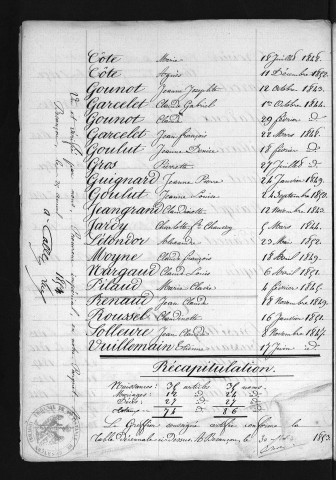 Côte Marie 18 Juillet 1848.
Côte Agnès 11 Décembre 1852.
Gounot Jeanne Josephte 12 Octobre 1843.
Garcelet Claude Gabriel 1er Octobre 1844.
Gounot Claude 29 février d°
Garcelet Jean françois 22 Mars 1848.
Goulut Jeanne Denise 18 février d°
Gros Pierrette 27 Juillet d°
Guignard Jeanne Pierre 24 Janvier 1849.
Goulut Jeanne Louise 24 Septembre 1850.
Jeangrand Claudinette 12 Novembre 1842.
Jarvy Charlotte 5 Mars 1844.
Létondor Alexandre 22 Mai 1852.
Moyne Claude françois 18 Avril 1849.
Nargaud Claude Louis 6 Avril 1851.
Pilaud Marie Claude 4 février 1845.
Renaud Jean Claude 18 Novembre 1849.
Roussel Claudinette 16 Janvier 1851.
Sollaire Jean Claude 8 Novembre 1847.
Vuillemain Etienne 17 Juin d°
Récapitulation.
Naissances: 35 articles 35 noms.
Mariages: 12 24
Décès: 27 27
74 86
Le Greffier soussigné certifie conforme la
Table Décennale ci-dessus. Besançon, le 1853